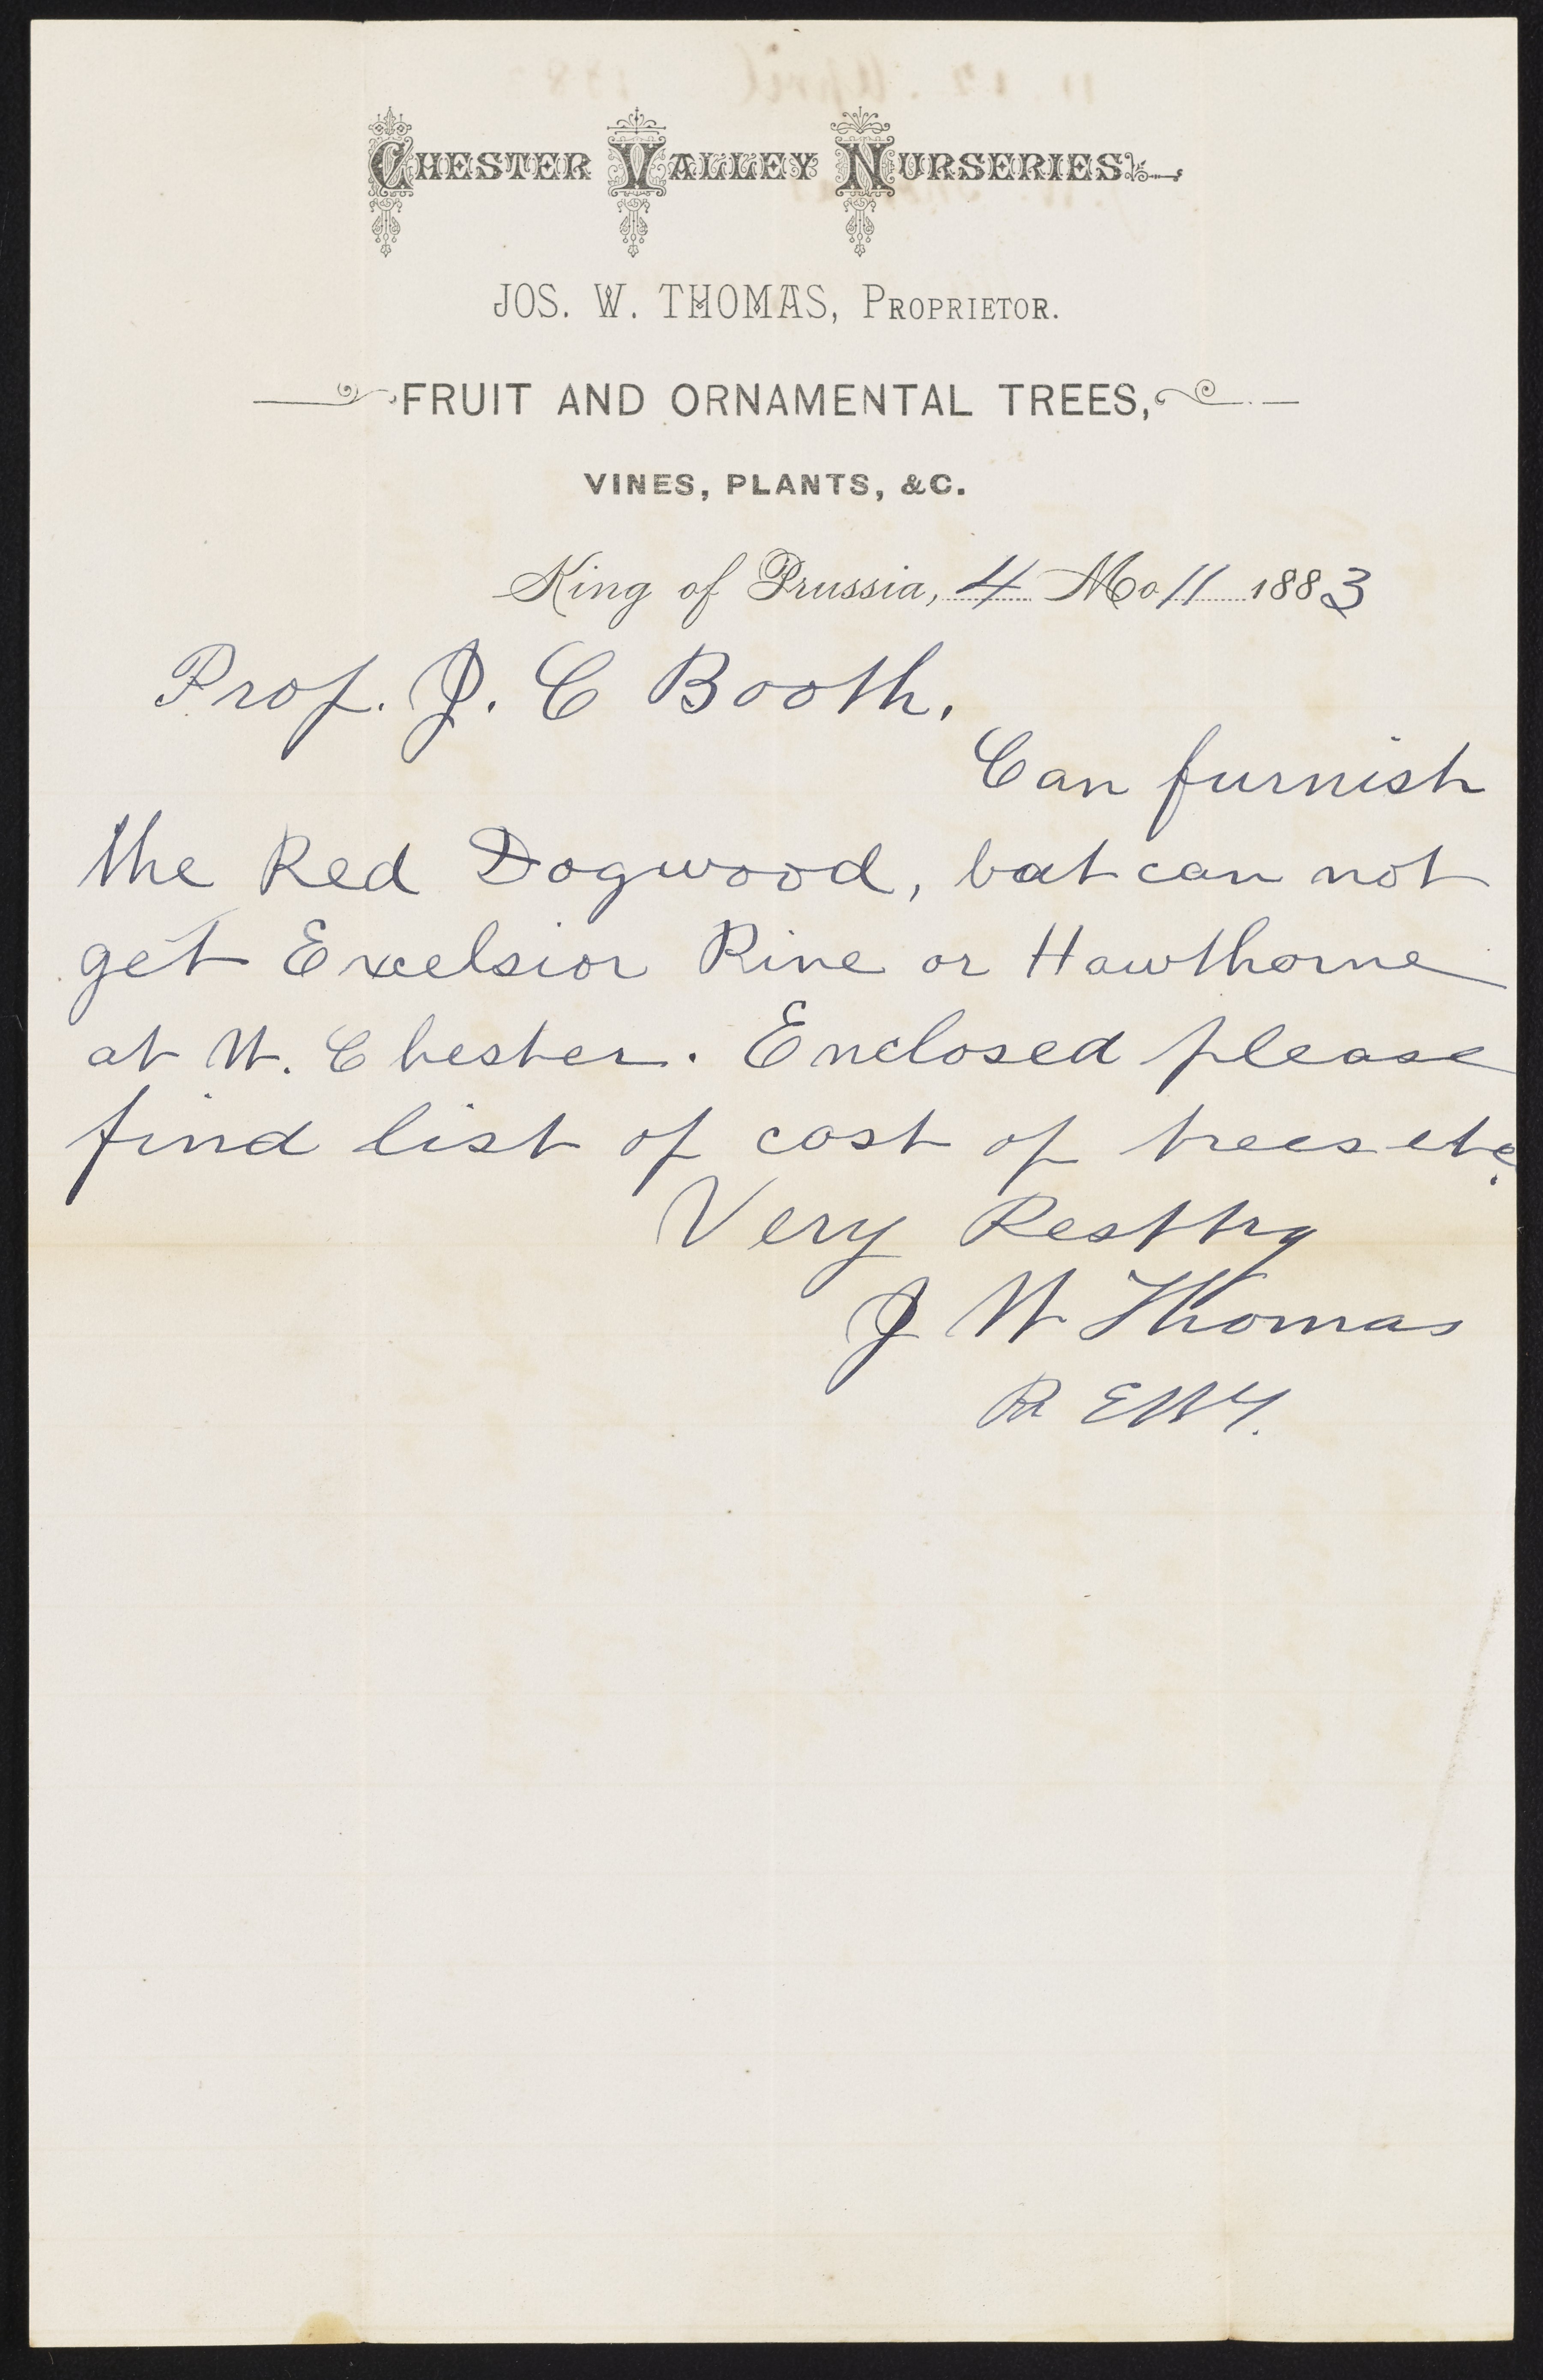 CHESTER VALLEY NURSERIES
JOS. W. THOMAS, PROPRIETOR.
FRUIT AND ORNAMENTAL TREES,
VINES, PLANTS, &C.
King of Prussia, 4 Mo 11 1883
Prof. J. C Booth.
Can furnish
the Red Dogwood, but can not
get Excelsior Pine or Hawthorne
at W. Chester. Enclosed please
find list of cost of trees etc.
Very
J W Thomas